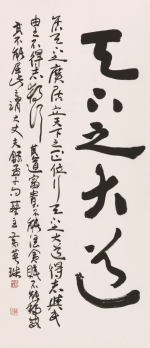 天下之大道
居天下之廣居立天下之正位行天下之大道得志與民
由之不得志獨行其道富貴不能淫貧賤不能移威
武不能屈此之謂大丈夫錄孟子句